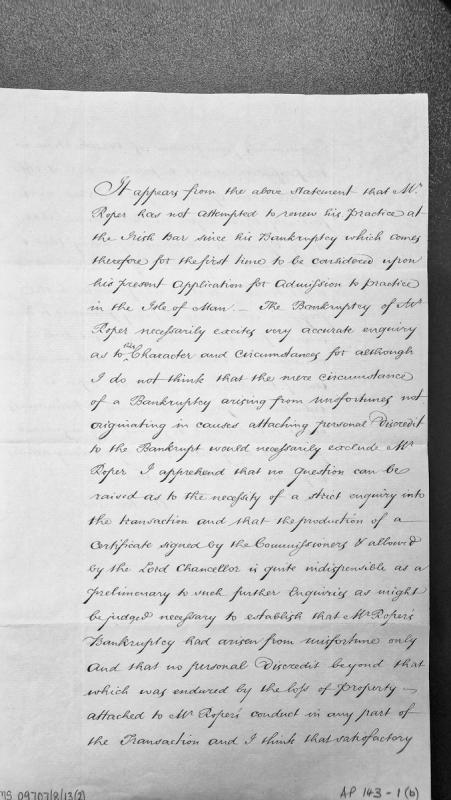 It appears from the above statement that Mr.
Roper has not attempted to renew his Practice at
the Irish Bar since his Bankruptcy which comes
therefore for the first time to be considered upon
his present Application for Admission to practice
in the Isle of Man. — The Bankruptcy of Mr
Roper necessarily excites very accurate enquiry
as to his Character and Circumstances for although
I do not think that the mere circumstance
of a Bankruptcy arising from misfortunes not
originating in causes attaching personal Discredit
to the Bankrupt would necessarily exclude Mr
Roper I apprehend that no question can be
raised as to the necessity of a strict enquiry into
the transaction and that the production of a
Certificate signed by the Commissioners & allowed
by the Lord Chancellor is quite indispensible as a
Prelimenary to such further Enquiries as might
be judged necessary to establish that Mr Roper's
Bankruptcy had arisen from misfortune only
And that no personal Discredit beyond that
which was endured by the loss of Property —
attached to Mr Roper's conduct in any part of
the Transaction and I think that satisfactory
MS 09707/8/13(2)
AP 143 - 1(b)